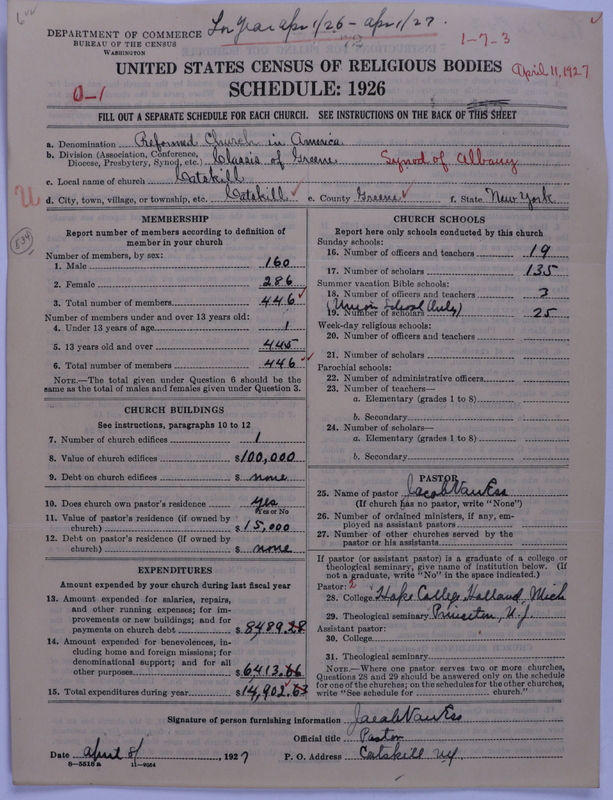 For Year Apr 1/26 - Apr 1/27.
DEPARTMENT OF COMMERCE
BUREAU OF THE CENSUS
WASHINGTON
1-7-3
UNITED STATES CENSUS OF RELIGIOUS BODIES
April 11, 1927
0-1
SCHEDULE: 1926
FILL OUT A SEPARATE SCHEDULE FOR EACH CHURCH. SEE INSTRUCTIONS ON THE BACK OF THIS SHEET
a. Denomination Reformed Church in America
b. Division (Association, Conference, Diocese, Presbytery, Synod, etc.) Classis of Greene Synod of Albany
c. Local name of church Catskill
d. City, town, village, or township, etc. Catskill e. County Greene f. State New York
534
MEMBERSHIP
Report number of members according to definition of
member in your church
Number of members, by sex:
1. Male 160
2. Female 286
3. Total number of members 446
Number of members under and over 13 years old:
4. Under 13 years of age 1
5. 13 years old and over 445
6. Total number of members 446
NOTE.—The total given under Question 6 should be
the same as the total of males and females given under Question 3.
CHURCH BUILDINGS
See instructions, paragraphs 10 to 12
7. Number of church edifices 1
8. Value of church edifices $100,000
9. Debt on church edifices $ none
10. Does church own pastor's residence yes
Yes or No
11. Value of pastor's residence (if owned by
church) $15,000
12. Debt on pastor's residence (if owned by
church) $ none
EXPENDITURES
Amount expended by your church during last fiscal year
13. Amount expended for salaries, repairs,
and other running expenses; for im-
provements or new buildings; and for
payments on church debt $8489.28
14. Amount expended for benevolences, in-
cluding home and foreign missions; for
denominational support; and for all
other purposes $6,413.66
15. Total expenditures during year $14,902.63
CHURCH SCHOOLS
Report here only schools conducted by this church
Sunday schools:
16. Number of officers and teachers 19
17. Number of scholars 135
Summer vacation Bible schools:
18. Number of officers and teachers 3
(Union School Only)
19. Number of scholars 25
Week-day religious schools:
20. Number of officers and teachers
21. Number of scholars
Parochial schools:
22. Number of administrative officers
23. Number of teachers—
a. Elementary (grades 1 to 8)
b. Secondary
24. Number of scholars—
a. Elementary (grades 1 to 8)
b. Secondary
PASTOR
25. Name of pastor Jacob Van Ess
(If church has no pastor, write "None")
26. Number of ordained ministers, if any, em-
ployed as assistant pastors
27. Number of other churches served by the
pastor or his assistants
If pastor (or assistant pastor) is a graduate of a college or
theological seminary, give name of institution below. (If
not a graduate, write "No" in the space indicated.)
Pastor: 2
28. College Hope College Holland, Mich
29. Theological seminary Princeton, N.J.
Assistant pastor:
30. College
31. Theological seminary
NOTE.—Where one pastor serves two or more churches,
Questions 28 and 29 should be answered only on the schedule
for one of the churches; on the schedules for the other churches,
write "See schedule for church."
Signature of person furnishing information Jacob Van Ess
Official title Pastor
Date April 8/, 1927 P. O. Address Catskill NY
8-5518a 11-9864